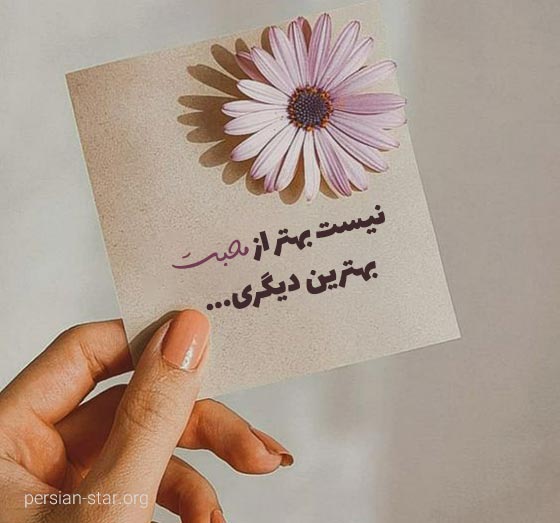 نیست بهتر از محبت
بهترین دیگری...
persian-star.org